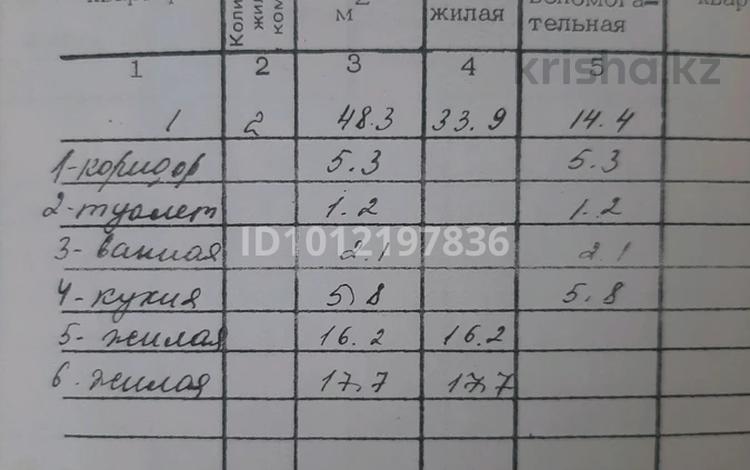 Коли
жи
ком
м
жилая
вспомога-
тельная
1 2 3 4 5
krisha.kz
1 2 48.3 33.9 14.4
1-коридор 5.3 5.3
2-туалет 1.2 1.2
3-ванная 2.1 2.1
ID1012197836
4-кухня 5.8 5.8
5-жилая 16.2 16.2
6.жилая 17.7 17.7